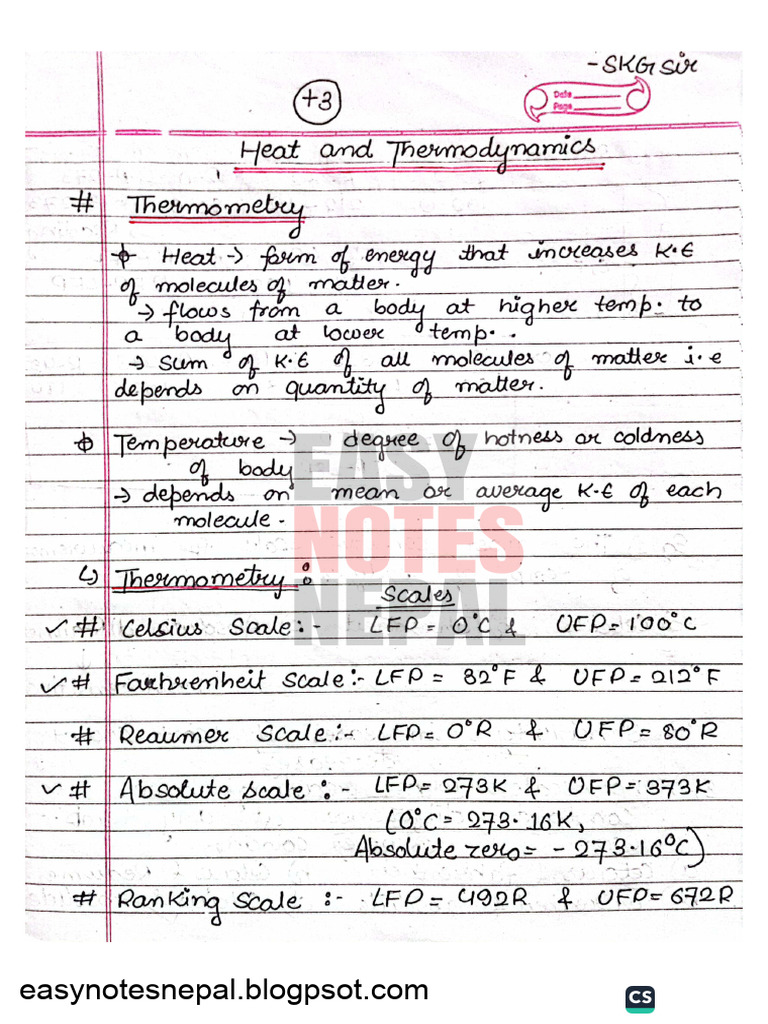 -SKG Sir
+3
Date
Page
Heat and Thermodynamics
# Thermometry
Heat → form of energy that increases K.E
of molecules of matter.
→ flows from a body at higher temp. to
a body at lower temp. .
→ Sum of K.E of all molecules of matter i.e
depends on quantity of matter.
Temperature → degree of hotness or coldness
of body
→ depends on mean or average K.E of each
molecule.
EASY
NOTES
NEPAL
↳ Thermometry :
Scales
✓ # Celsius Scale :- LFP = 0°C & UFP = 100°C
✓ # Farhrenheit Scale :- LFP = 32°F & UFP = 212°F
# Reaumer Scale :- LFP = 0°R & UFP = 80°R
✓ # Absolute scale :- LFP = 273K & UFP = 373K
(0°C = 273.16K,
Absolute zero = - 273.16°C)
# Ranking Scale :- LFP = 492R & UFP = 672R
easynotesnepal.blogpsot.com
CS